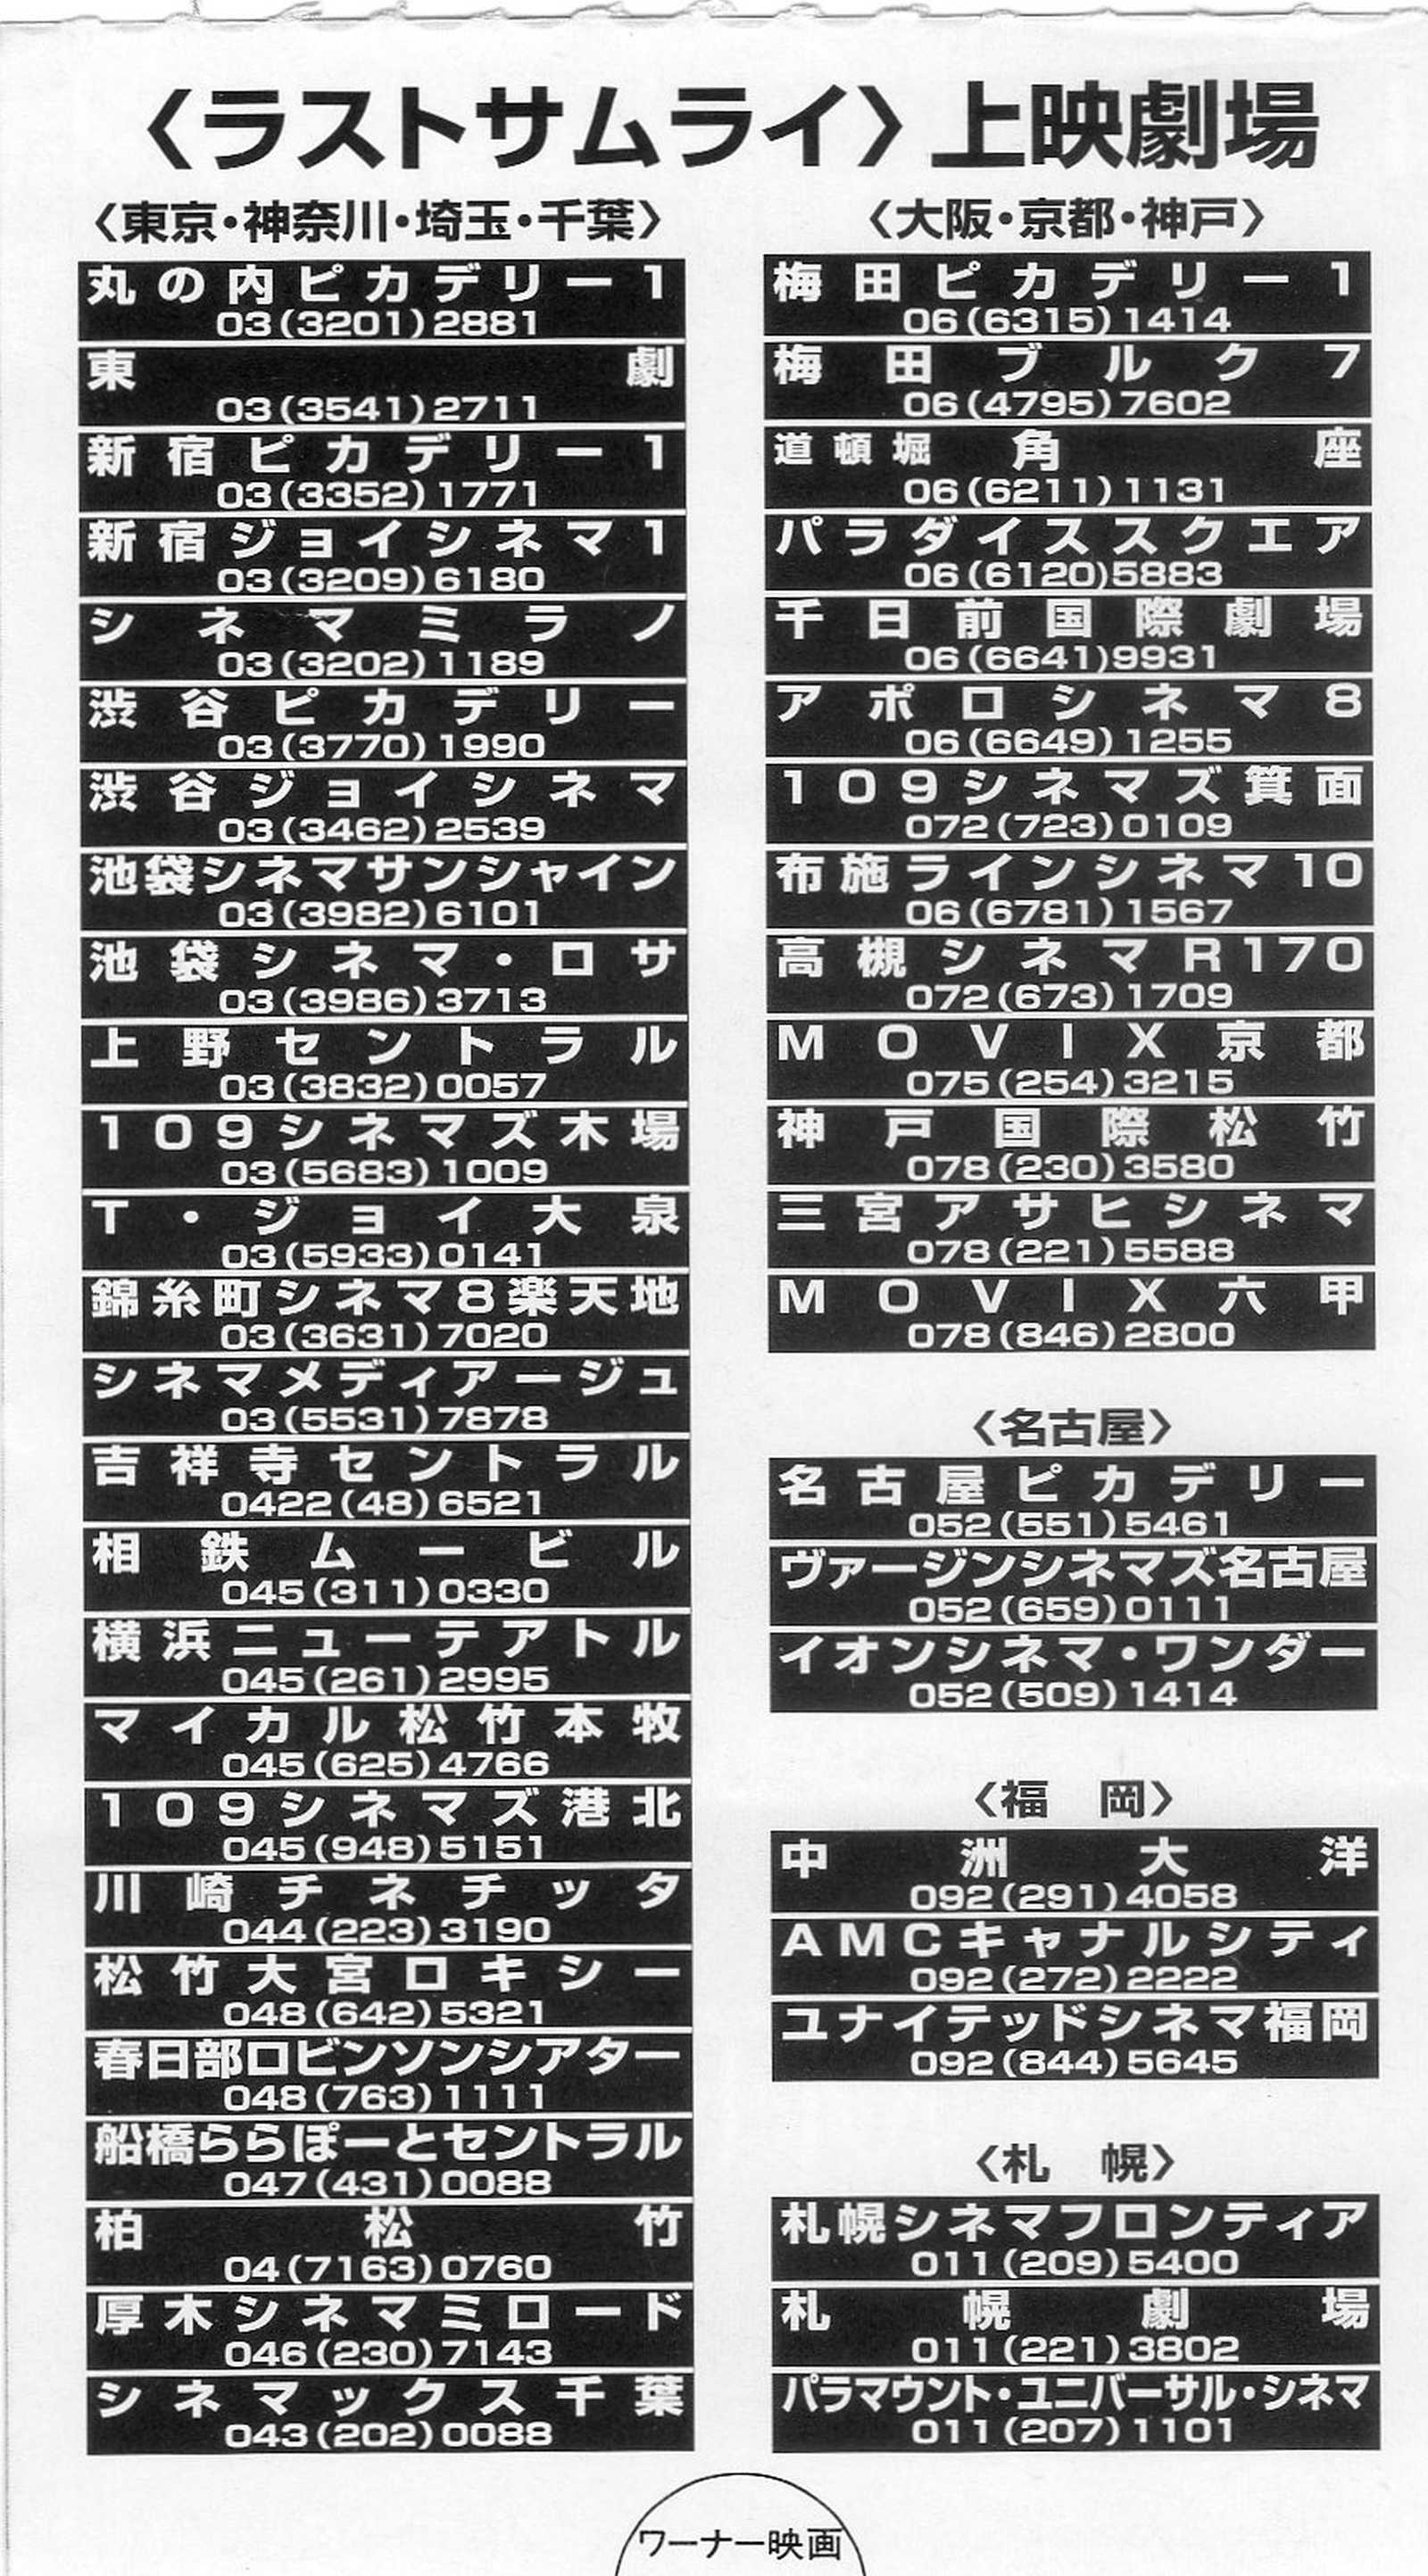 〈ラストサムライ〉上映劇場
〈東京・神奈川・埼玉・千葉〉
丸の内ピカデリー1
03(3201)2881
東劇
03(3541)2711
新宿ピカデリー1
03(3352)1771
新宿ジョイシネマ1
03(3209)6180
シネマミラノ
03(3202)1189
渋谷ピカデリー
03(3770)1990
渋谷ジョイシネマ
03(3462)2539
池袋シネマサンシャイン
03(3982)6101
池袋シネマ・ロサ
03(3986)3713
上野セントラル
03(3832)0057
109シネマズ木場
03(5683)1009
T・ジョイ大泉
03(5933)0141
錦糸町シネマ8楽天地
03(3631)7020
シネマメディアージュ
03(5531)7878
吉祥寺セントラル
0422(48)6521
相鉄ムービル
045(311)0330
横浜ニューテアトル
045(261)2995
マイカル松竹本牧
045(625)4766
109シネマズ港北
045(948)5151
川崎チネチッタ
044(223)3190
松竹大宮ロキシー
048(642)5321
春日部ロビンソンシアター
048(763)1111
船橋ららぽーとセントラル
047(431)0088
柏松竹
04(7163)0760
厚木シネマミロード
046(230)7143
シネマックス千葉
043(202)0088
〈大阪・京都・神戸〉
梅田ピカデリー1
06(6315)1414
梅田ブルク7
06(4795)7602
道頓堀 角座
06(6211)1131
パラダイススクエア
06(6120)5883
千日前国際劇場
06(6641)9931
アポロシネマ8
06(6649)1255
109シネマズ箕面
072(723)0109
布施ラインシネマ10
06(6781)1567
高槻シネマR170
072(673)1709
MOVIX京都
075(254)3215
神戸国際松竹
078(230)3580
三宮アサヒシネマ
078(221)5588
MOVIX六甲
078(846)2800
〈名古屋〉
名古屋ピカデリー
052(551)5461
ヴァージンシネマズ名古屋
052(659)0111
イオンシネマ・ワンダー
052(509)1414
〈福　岡〉
中洲大洋
092(291)4058
AMCキャナルシティ
092(272)2222
ユナイテッドシネマ福岡
092(844)5645
〈札　幌〉
札幌シネマフロンティア
011(209)5400
札幌劇場
011(221)3802
パラマウント・ユニバーサル・シネマ
011(207)1101
ワーナー映画